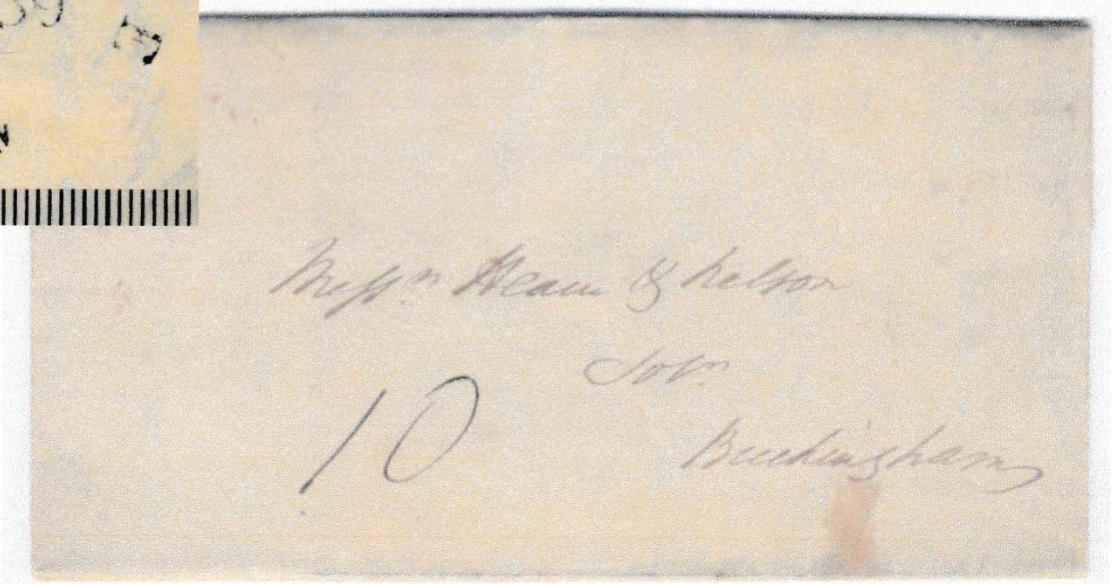 39 E
N
Messrs Hearn & Nelson
Solrs
10
Buckingham